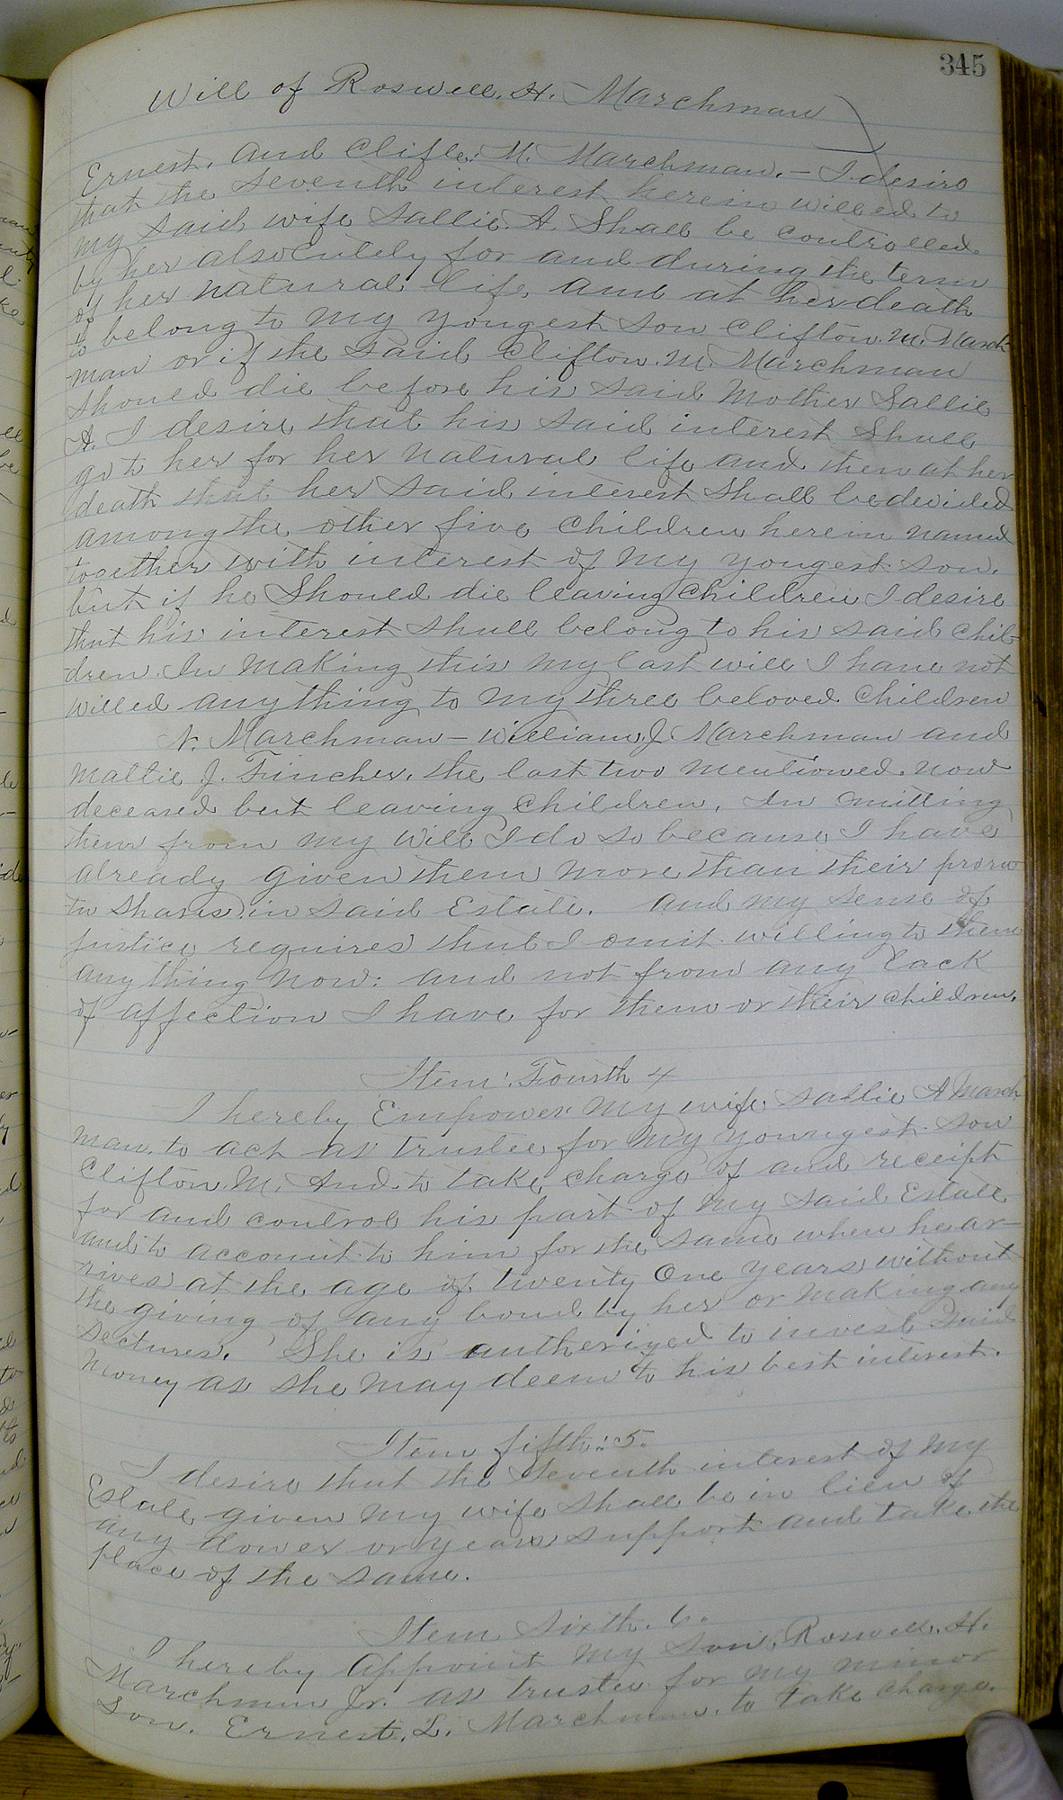 345
Will of Roswell. H. Marchman
Ernest. and Clifton M. Marchman. - I desire
that the seventh interest herein willed to
my said wife Sallie A. Shall be controlled
by her absolutely for and during the term
of her natural life and at her death
to belong to my yongest son Clifton. M. March
-man or if the said Clifton. M. Marchman
should die before his said Mother Sallie
A. I desire that his said interest Shall
go to her for her natural life and then at her
death that her said interest Shall be devided
among the other five children herein named
together with interest of my yongest son.
but if he Should die leaving children I desire
that his interest shall belong to his said chil-
-dren. In making this my last will I have not
willed anything to my three beloved children
N. Marchman - William J. Marchman and
Mattie J. Fincher. the last two mentioned. now
deceased but leaving children. In mitting
them from my will I do so because I have
already given them more than their prora
ta shares in said Estate. and my sense of
justice requires that I omit willing to them
anything now: and not from any lack
of affection I have for them or their children.
Item: Fourth 4
I hereby Empower my wife Sallie A March
man. to act as trustee for my youngest son
Clifton M. And. to take charge of and receipt
for and control his part of my said Estate
and to account to him for the same when he ar-
rives at the age of twenty One years without
the giving of any bond by her or making any
Seturns. She is autherized to invest said
money as she may deem to his best interest.
Item fifth: 5.
I desire that the Seventh interest of my
Estate given my wife shall be in lieu of
any dower or years support and take the
place of the same.
Item Sixth. 6.
I hereby appoint my son. Roswell. H.
Marchman Jr. as trustee for my minor
Son. Ernest. L. Marchman. to take charge.